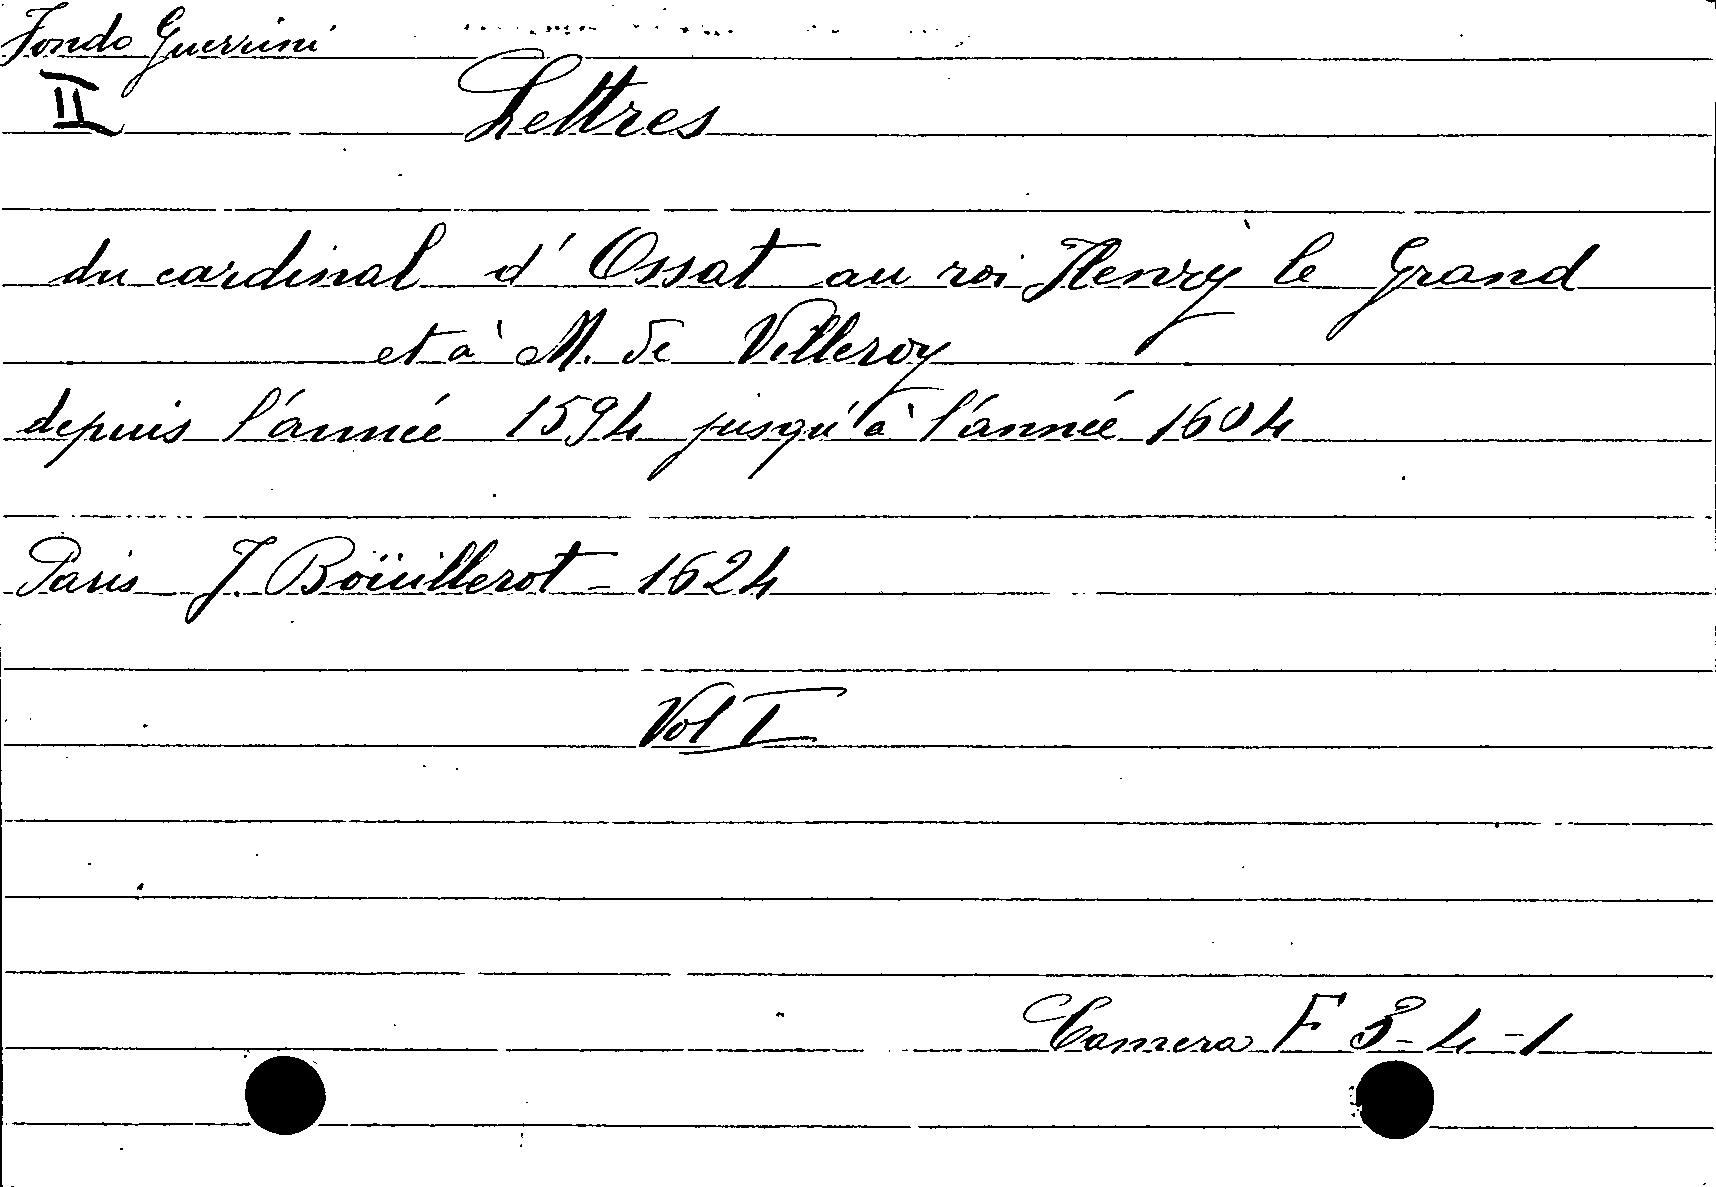 Fondo Guerrini
II Lettres
du cardinal d'Ossat au roi Henry le Grand
et à M. de Villeroy
depuis l'année 1594 jusqu'à l'année 1604
Paris J. Boüillerot - 1624
Vol I
Camera F 8-4-1